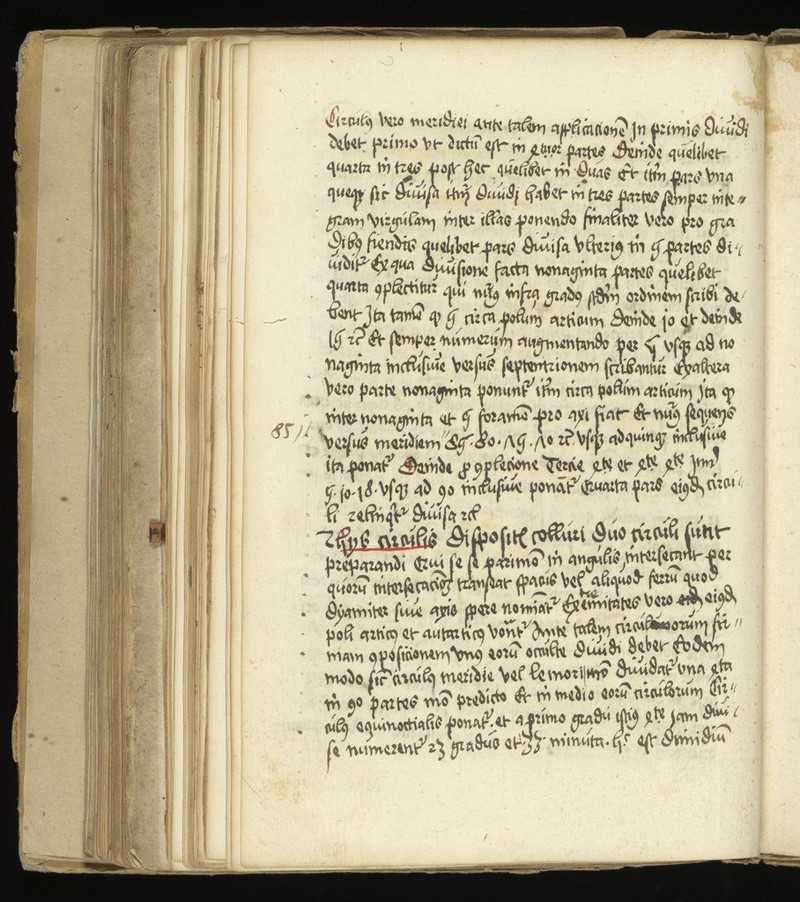 Circulus vero meridiei ante talem applicacionē In primis diuidi
debet primo vt dictū est in qtuor partes Deinde quelibet
quarta in tres post hec quelibet in duas Et itm̄ pars vna
queqz sic diuisa itm̄ diuidi habet in tres partes semper inte
gram virgulam inter illas ponendo finaliter vero pro gra
dibus fiendis quelibet pars diuisa vlterius in 5 partes di
uidit᷑ Ex qua diuisione facta nonaginta partes quelibet
quarta 9plectitur qui numerus infra gradus scdm̄ ordinem scribi de
bent Ita tamē qp 5 circa polum articum deinde 10 et deinde
15 rc̄ Et semper numerum augmentando per 5 vsqz ad no
naginta inclusiue versus septentrionem scribantur Ex altera
vero parte nonaginta ponunt᷑ itm̄ circa polum articum Ita qp
inter nonaginta et 5 foramē pro axi fiat Et numerus sequens
85
versus meridiem 85 · 80 · 75 · 70 rc̄ vsqz ad quinqz inclusiue
ita ponat᷑ Deinde pro 9plecione Tercie qrte et
5 · 10 · 18 · vsqz ad 90 inclusiue ponat᷑ Quarta pars eiusdem circu
li relinqt᷑ diuisa rc̄
Hys circulis disposit colluri duo circuli sunt
preparandi Qui se se parimō in angulis intersecant per
quorum intersecacionem transeat spacis vel aliquod ferrū quod
dyamiter siue axis spere nominat᷑ Extremitates vero eiusdem
poli articus et antarticus vocant᷑ Ante talem circulorum fir
mam 9posicionem vnus eorū occulte diuidi debet Eodem
modo sic circulus meridie vel diuidat᷑ vna qrta
in 90 partes mō predicto Et in medio eorū circulorum Cir
culus equinoctialis ponat᷑ et a primo gradu istius qrte Jam diui
se numerent᷑ 23 gradus et 33 minuta · hoc est dimidiū